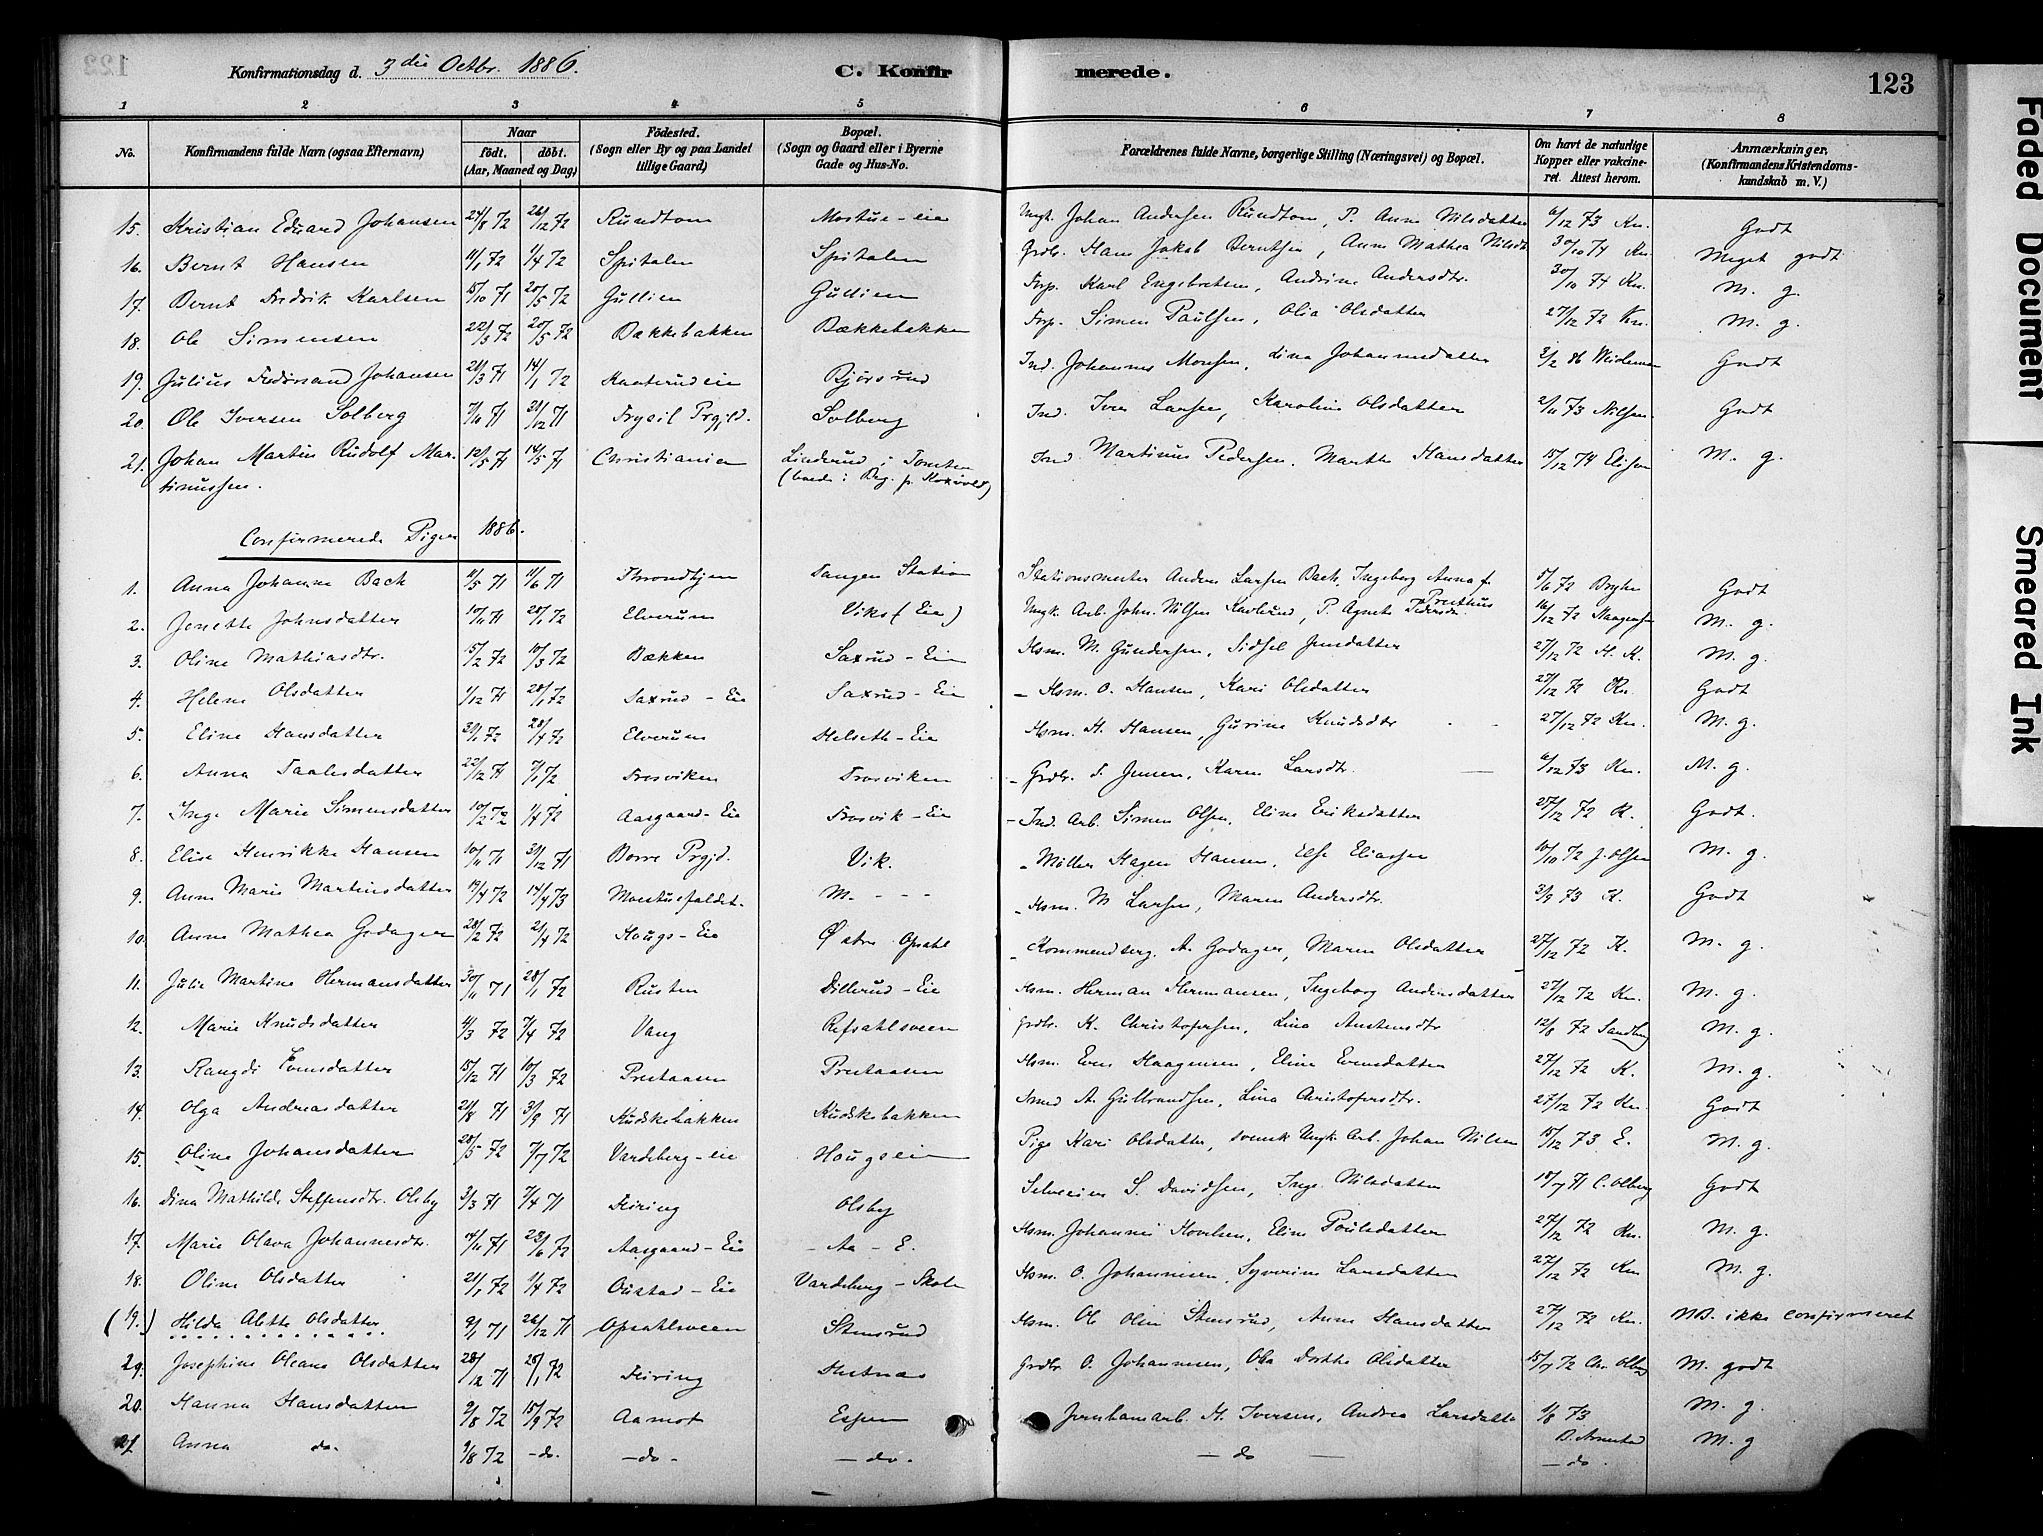 Konfirmationsdag d. 3die Octbr. 1886. C. Konfirmerede. 123
1 2 3 4 5 6 7 8
No. Konfirmandens fulde Navn (ogsaa Efternavn) Naar födt. döbt. (Aar, Maaned og Dag) Födested. (Sogn eller By og paa Landet tillige Gaard) Bopæl. (Sogn og Gaard eller i Byerne Gade og Hus-No. Forældrenes fulde Navne, borgerlige Stilling (Næringsvei) og Bopæl. Om havt de naturlige Kopper eller vakcineret. Attest herom. Anmærkninger, (Konfirmandens Kristendomskundskab m. V.)
15. Kristian Eduard Johansen 24/8 72 26/12 72 Rundtom Mostue-eie Ungk. Johan Andersen Rundtom, P. Anne Nilsdatter 6/12 73 Kn. Godt
16. Bernt Hansen 11/1 72 1/4 72 Spitalen Spitalen Grdbr. Hans Jakob Berntsen, Anne Mathea Nilsdt 30/10 74 Kn. Meget godt
17. Bernt Fredrik Karlsen 15/10 71 20/5 72 Gullien Gullien Frp. Karl Engebretsen, Andrine Andersdtr. 30/10 74 Kn. M. g.
18. Ole Simensen 22/3 72 20/5 72 Bækkebakken Bækkebakken Frp. Simen Paulsen, Olia Olsdatter 27/12 72 Kn. M. g.
19. Julius Ferdinand Johansen 28/3 71 14/1 72 Kaaterud eie Bjørsrud Ind. Johannes Monsen, Lina Johannesdatter 2/2 86 Godt
20. Ole Iversen Solberg 7/11 71 21/12 71 Trysil Prgjld. Solberg Ind. Iver Larsen, Karoline Olsdatter 2/11 73 Nilsen Godt
21. Johan Martin Rudolf Mar- 12/5 71 14/5 71 Christiania Linderud i Tomten Ind. Martinus Pedersen, Marthe Hansdatter 15/12 74 M. g.
tinussen.
Confirmerede Piger 1886.
1. Anna Johanne Bach 11/5 71 11/6 71 Throndhjem Tangen Station Stationsmester Anders Larsen Bach, Ingeborg Anna f. Presthus 5/6 72 Godt
2. Jonette Johnsdatter 10/11 71 28/1 72 Elverum Viks (Eie) Ungk. Arb. John Nilsen Kavlrud, P. Agnete Pedersdr. 16/12 72 M. g.
3. Oline Mathiasdtr. 15/2 72 10/3 72 Bækken Saxrud-Eie Hsm. M. Gundersen, Sidsel Jensdatter 27/12 72 M. g.
4. Helene Olsdatter 1/12 71 28/1 72 Saxrud-Eie Saxrud-Eie - Hsm. O. Hansen, Kari Olsdatter 27/12 72 Kn. Godt
5. Eline Hansdatter 30/1 72 28/4 72 Elverum Helseth-Eie Hsm. H. Hansen, Gurine Knudsdtr 27/12 72 Kn. M. g.
6. Anna Taalesdatter 22/12 71 7/1 72 Frosviken Frosviken - Grdbr. T. Jensen, Karen Larsdtr. 6/12 73 Kn. M. g.
7. Inge Marie Simensdatter 10/2 72 1/4 72 Aasgaard-Eie Frosvik-Eie - Ind. Arb. Simen Olsen, Eline Eriksdatter 27/12 72 K. Godt.
8. Elise Henrikke Hansen 10/11 71 31/12 71 Borre Prgjd. Vik. - Møller Hagen Hansen, Else Eliassen 10/10 72 J. Olsen M. g.
9. Anne Marie Martinsdatter 19/4 72 14/4 73 Moestuefaldet. M. - - - - Hsm. M Larsen, Maren Andersdtr. 3/9 73 K. Godt
10. Anne Mathea Godager 28/2 72 21/4 72 Hougs-Eie Østre Opsal - Kommendserg. A. Godager, Maren Olsdatter 27/12 72 K. M. g.
11. Julie Martine Hermansdatter 30/11 71 28/1 72 Rusten Dillerud-Eie Hsm. Herman Hermansen, Ingeborg Andersdatter 27/12 72 Kn. M. g.
12. Marie Knudsdatter 4/3 72 7/4 72 Vang Refsahlsveen Grdbr. K. Christophersen, Lina Austensdtr 12/8 72 Sandberg M. g.
13. Rangdi Evensdatter 15/12 71 10/3 72 Prestaasen Prestaasen Hsm. Even Haagensen, Eline Evensdatter 27/12 72 K. M. g.
14. Olga Andreasdatter 21/8 71 3/9 71 Kudskebakken Kudskebakken Smed A. Gulbrandsen, Lina Christophersdtr. 27/12 72 Kn. Godt
15. Oline Johansdatter 28/5 72 7/7 72 Vardeberg-eie Hougs eie Pige Kari Olsdatter, svensk Ungk. Arb. Johan Nilsen 15/12 73 E. M. g.
16. Dina Mathilde Steffensdtr. Olsby 3/3 71 7/4 71 Feiring Olsby Selveier S. Davidsen, Inge Nilsdatter 18/7 71 C. Olberg Godt
17. Marie Olava Johannesdtr. 14/11 71 23/6 72 Aasgaard-Eie - Aa - E. Hsm. Johannes Hovelsen, Eline Poulsdatter 27/12 72 Kn. M. g.
18. Oline Olsdatter 21/1 72 1/4 72 Oustad-Eie Vardeberg-Skole Hsm. O. Johannesen, Syverine Larsdatter 27/12 72 Kn M. g.
(19.) Hilda Alette Olsdatter 9/1 71 26/12 71 Opsahlsveen Stensrud Hsm. Ole Olsen Stensrud, Anne Hansdatter 27/12 72 Kn. NB. ikke confirmeret
29. Josephine Oleane Olsdatter 28/12 71 28/1 72 Feiring Stutnæs Grdbr. O. Johannesen, Oba Dorthe Olsdatter 15/7 72 Chr. Olberg M. godt
20. Hanna Hansdatter 9/8 72 15/9 72 Aamot Espen Jernbanearb. H. Iversen, Andrea Larsdatter 1/8 73 M. g.
21. Anna do. 9/8 72 -do. -do- -do. -do- -do. M. g
Faded Document
Smeared Ink